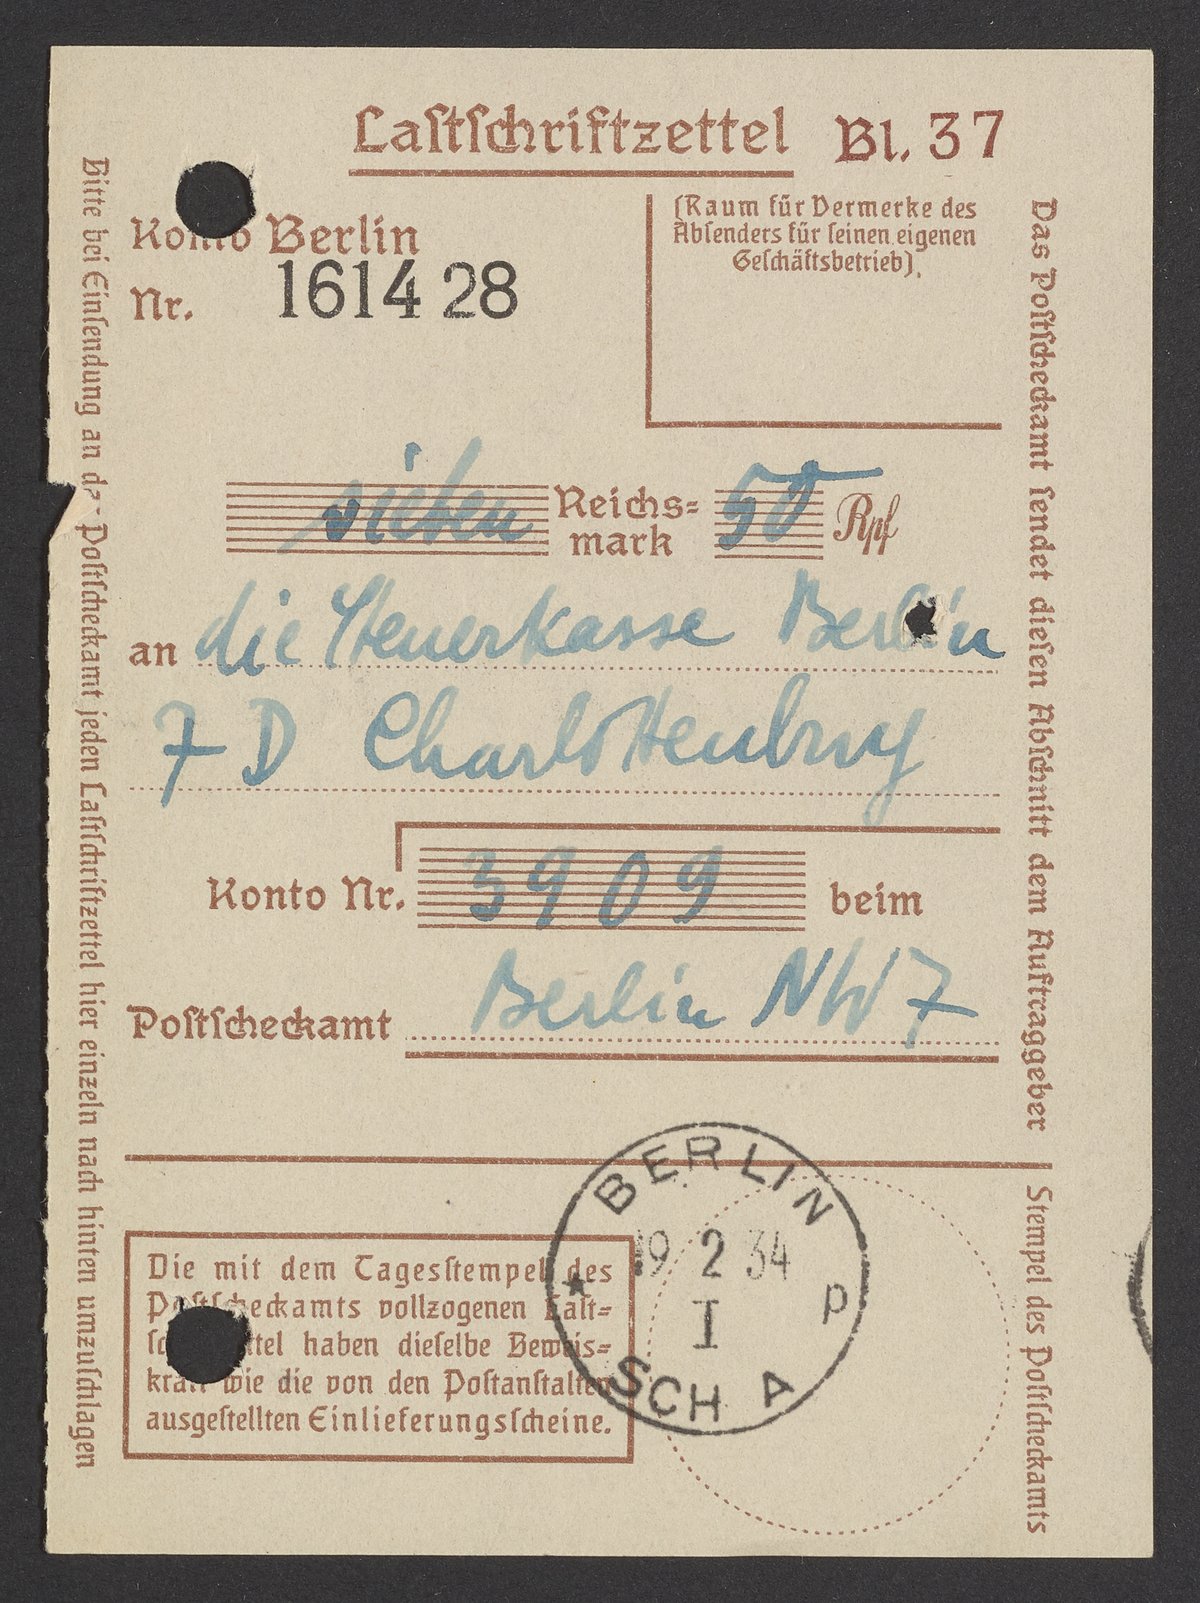 Lastschriftzettel Bl. 37
Konto Berlin
Nr. 1614 28
(Raum für Vermerke des
Absenders für seinen eigenen
Geschäftsbetrieb)
sieben Reichs=
mark 50 Rpf
an die Steuerkasse Berlin
7 D Charlottenburg
Konto Nr. 3909 beim
Postscheckamt Berlin NW 7
Die mit dem Tagesstempel des
Postscheckamts vollzogenen Last=
schriftzettel haben dieselbe Beweis=
kraft wie die von den Postanstalten
ausgestellten Einlieferungsscheine.
BERLIN
19 2 34
I
p
SCH A
Bitte bei Einsendung an das Postscheckamt jeden Lastschriftzettel hier einzeln nach hinten umzuschlagen
Das Postscheckamt sendet diesen Abschnitt dem Auftraggeber
Stempel des Postscheckamts